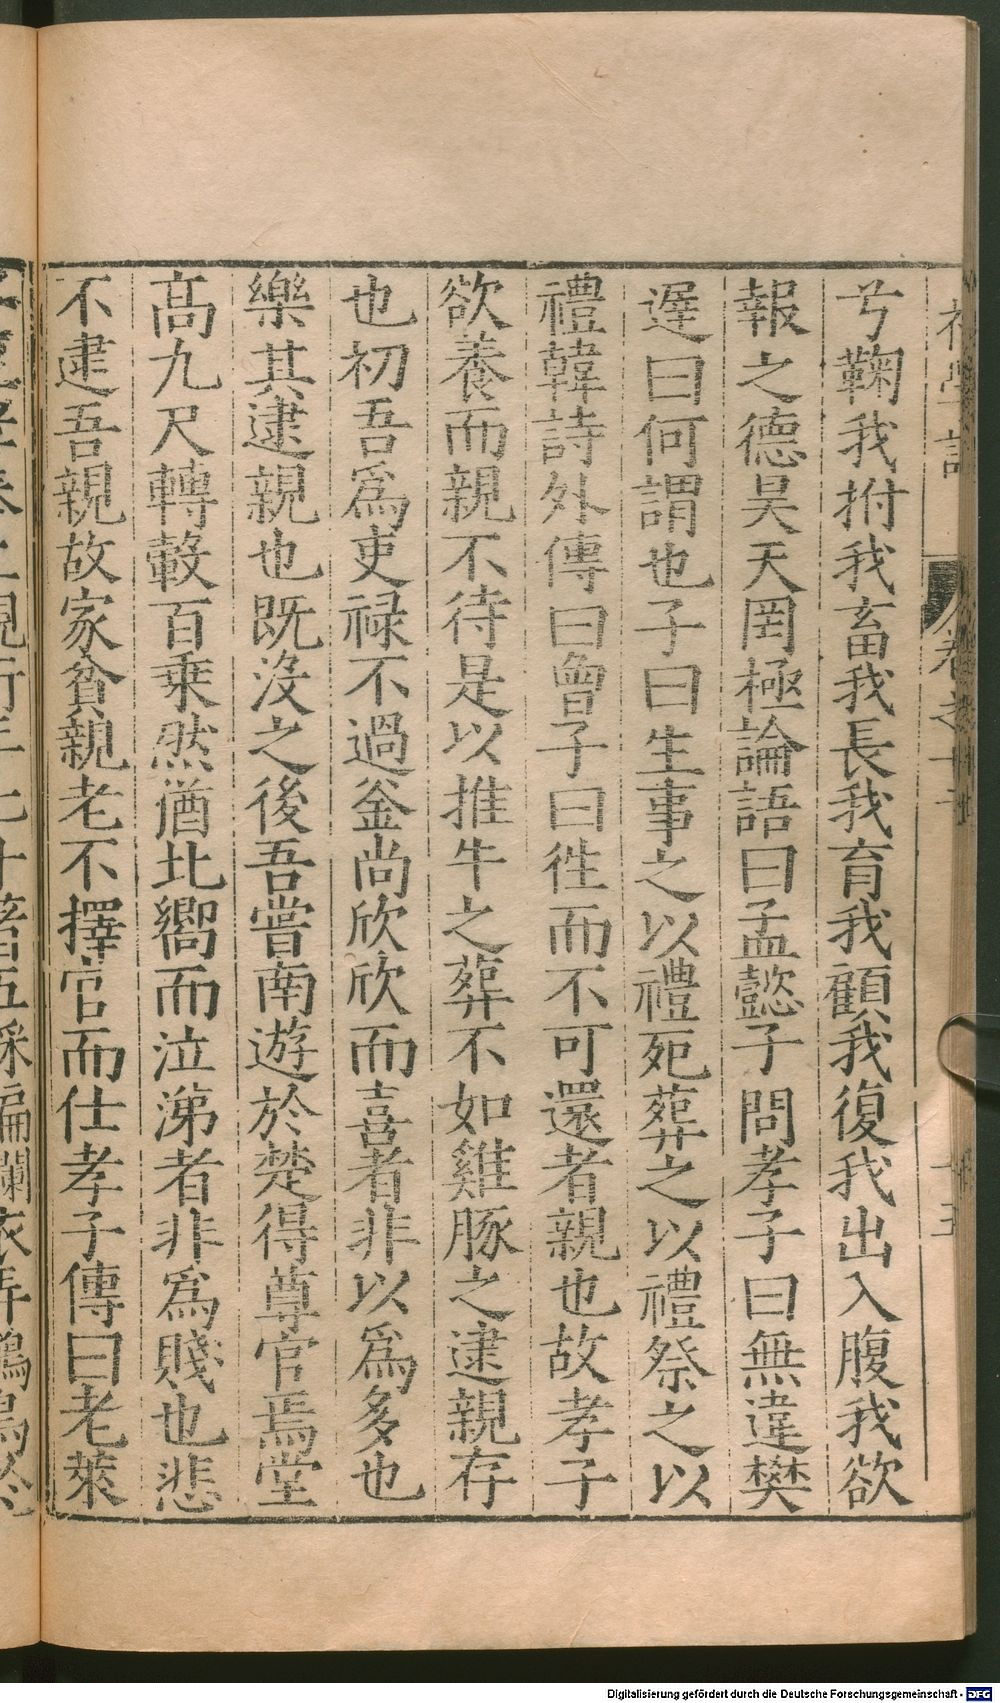 兮鞠我拊我畜我長我育我顧我復我出入腹我欲
報之德昊天罔極論語曰孟懿子問孝子曰無違樊
遲曰何謂也子曰生事之以禮死葬之以禮祭之以
禮韓詩外傳曰曾子曰徃而不可還者親也故孝子
欲養而親不待是以推牛之葬不如雞豚之逮親存
也初吾爲吏禄不過釜尚欣欣而喜者非以爲多也
樂其逮親也既沒之後吾嘗南遊於楚得尊官焉堂
高九尺轉轂百乘然猶北嚮而泣涕者非爲賤也悲
不逮吾親故家貧親老不擇官而仕孝子傳曰老萊
Digitalisierung gefördert durch die Deutsche Forschungsgemeinschaft - DFG